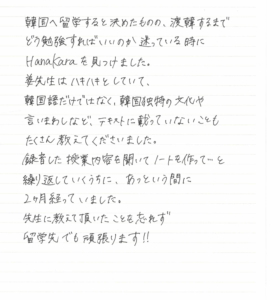 韓国へ留学すると決めたものの、渡韓するまで
どう勉強すればいいのか迷っている時に
HanaKaraを見つけました。
姜先生はハキハキとしていて、
韓国語だけではなく、韓国独特の文化や
言いまわしなど、テキストに載っていないことも
たくさん教えてくださいました。
録音した授業内容を聞いてノートを作って…と
繰り返していくうちに、あっという間に
2ヶ月経っていました。
先生に教えて頂いたことを忘れず
留学先でも頑張ります!!